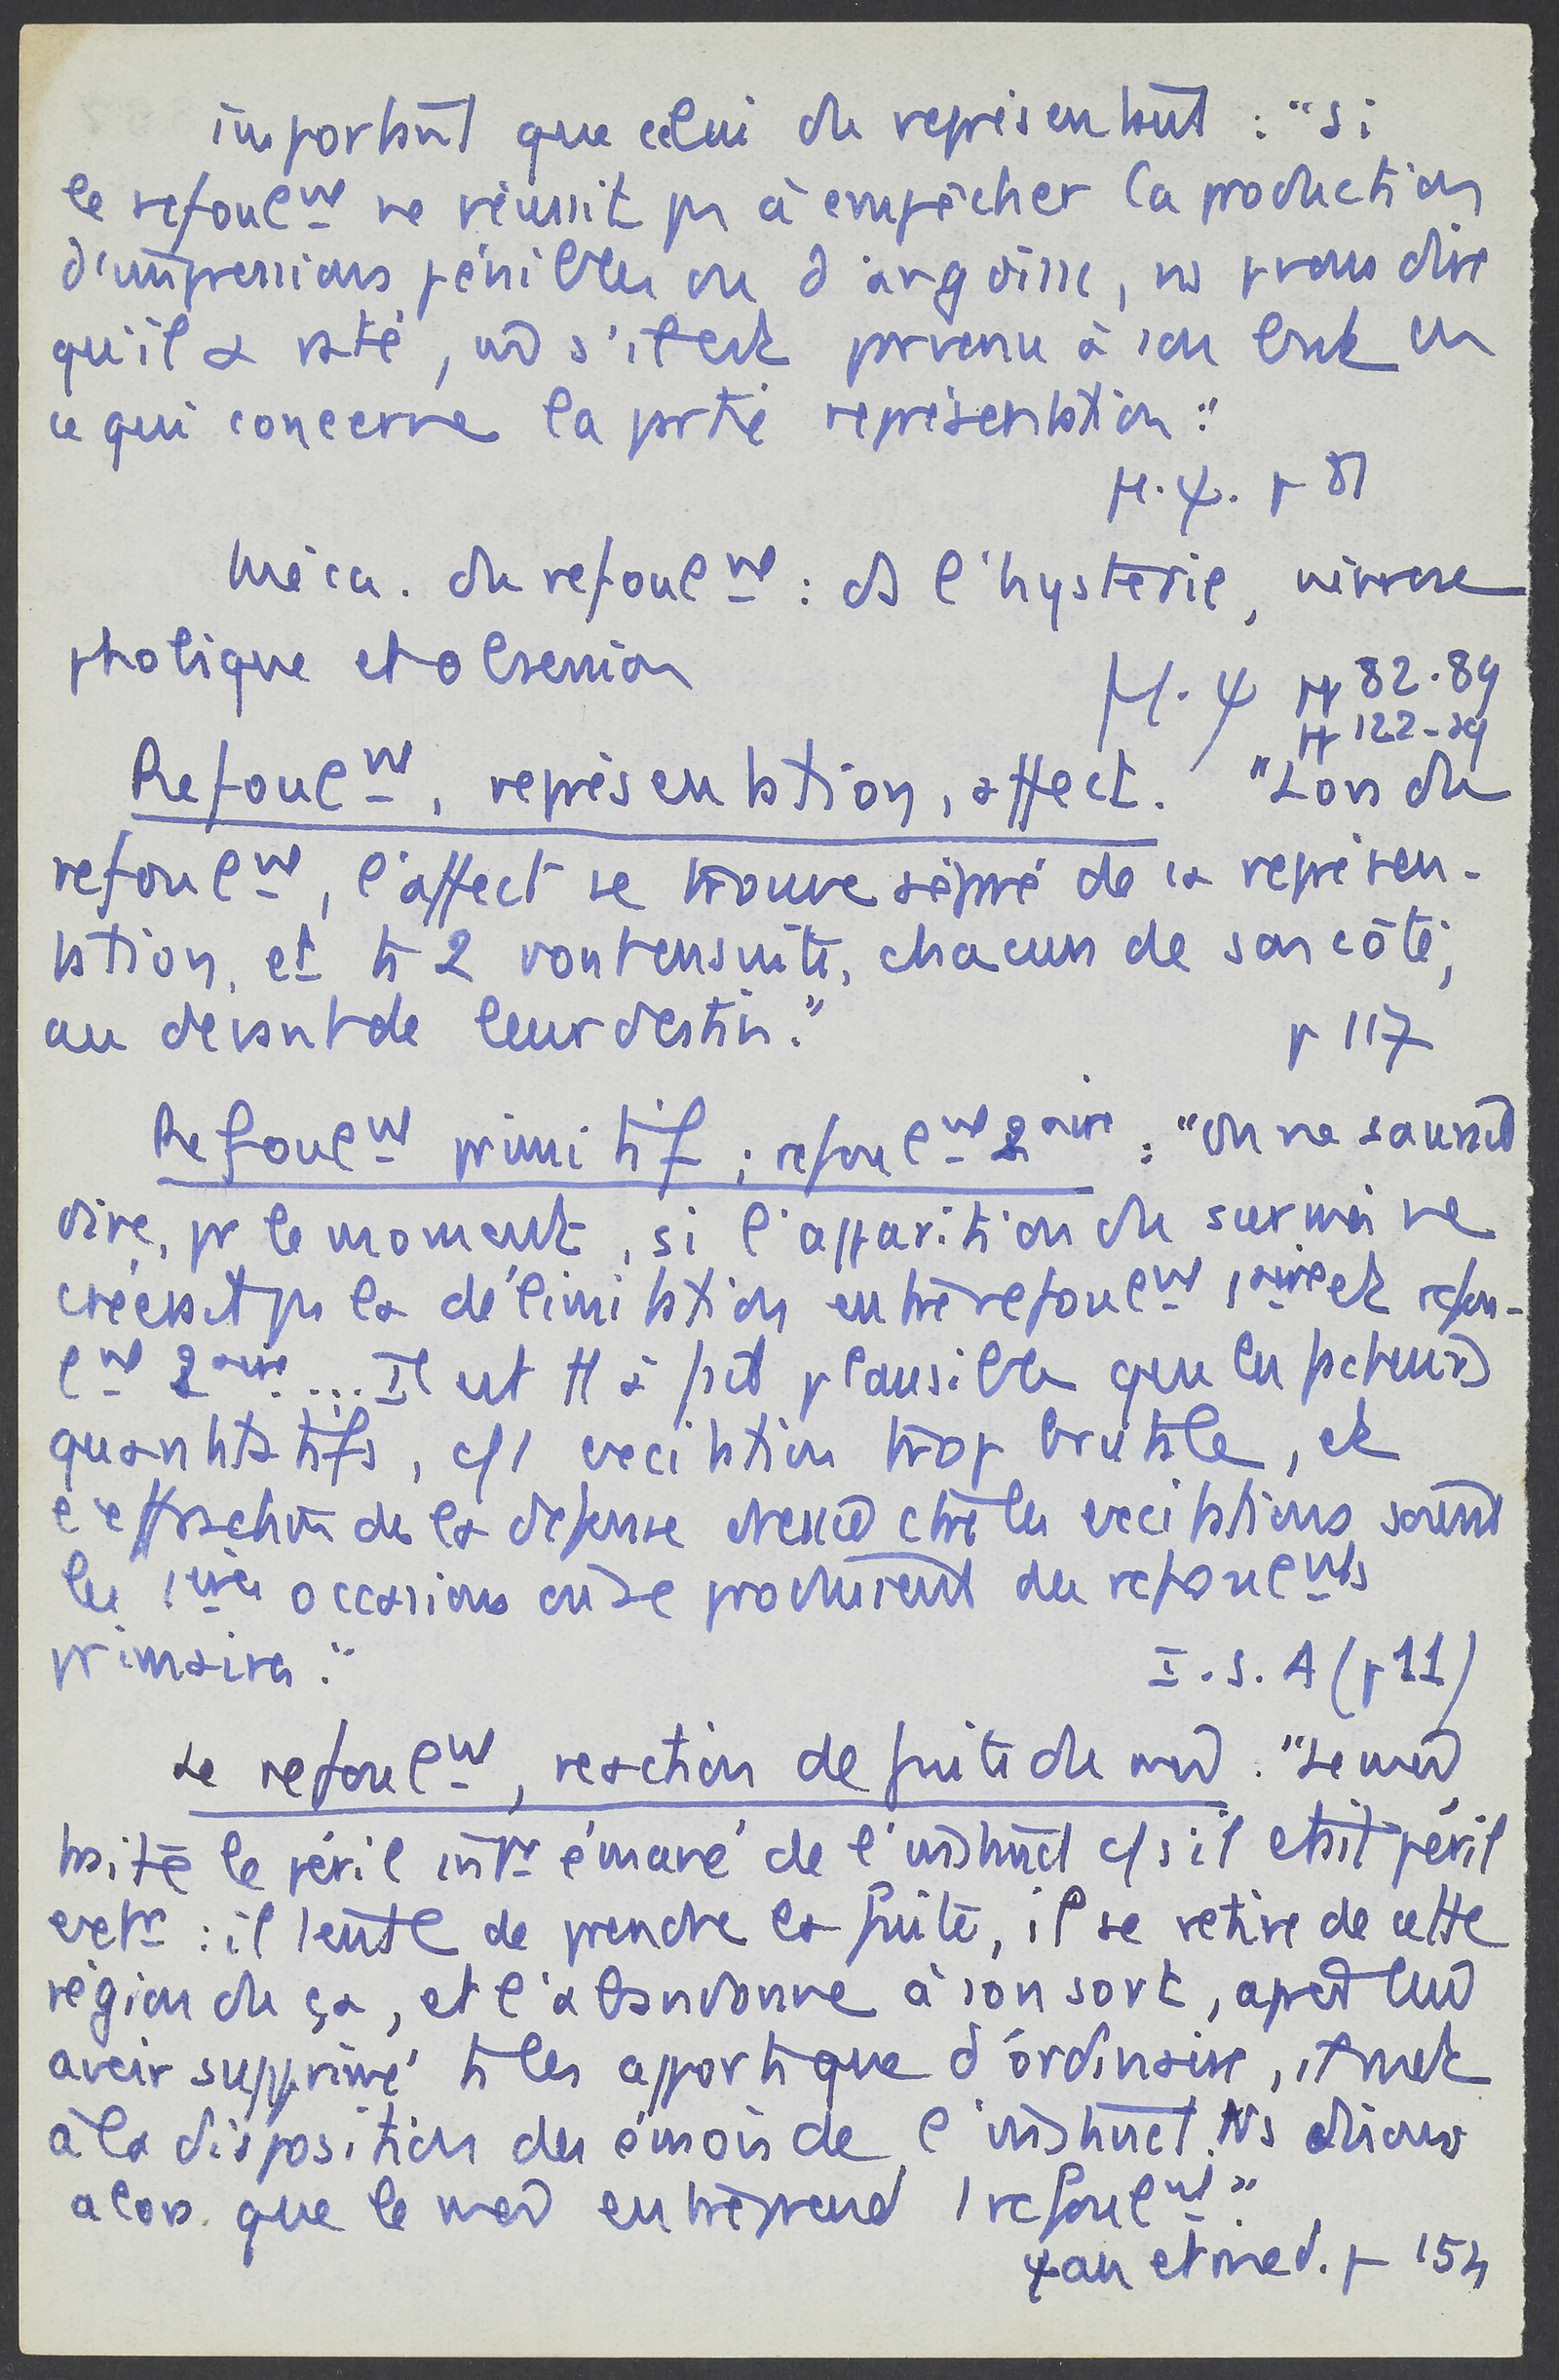 important que celui du représentant : "Si
le refoulmt ne réussit ps à empêcher la production
d'impressions pénibles ou d'angoisse, ns prons dire
qu'il a raté, md s'il est parvenu à son but en
ce qui concerne la partie représentation."
M.ψ. p 81
Méca. du refoulmt : ds l'hystérie, névrose
phobique et obsession
M.ψ pp 82-89
pp 122-29
Refoulmt, représentation, affect. "Lors du
refoulmt, l'affect se trouve séparé de sa représen-
tation, et ts 2 vont ensuite, chacun de son côté,
au devant de leur destin."
p 117
Refoulmt primitif ; refoulmt 2aire : "On ne saurait
dire, pr le moment, si l'apparition du surmoi ne
créerait ps la délimitation entre refoulmt 1aire et refou-
lmt 2aire ... Il est tt à fait plausible que les facteurs
quantitatifs, c/ 1 excitation trop brutale, et
l'effraction de la défense dressée ctre les excitations soient
les 1ères occasions où se produisent des refoulmts
primaires."
I.S.A (p 11)
Le refoulmt, réaction de fuite du moi : "Le moi
traite le péril intr émané de l'instinct c/ s'il était péril
extr : il tente de prendre la fuite, il se retire de cette
région du ça, et l'abandonne à son sort, après lui
avoir supprimé ts les apports que d'ordinaire, il met
à la disposition des émois de l'instinct. Ns disons
alors que le moi entreprend 1 refoulmt."
ψan et med. p 154